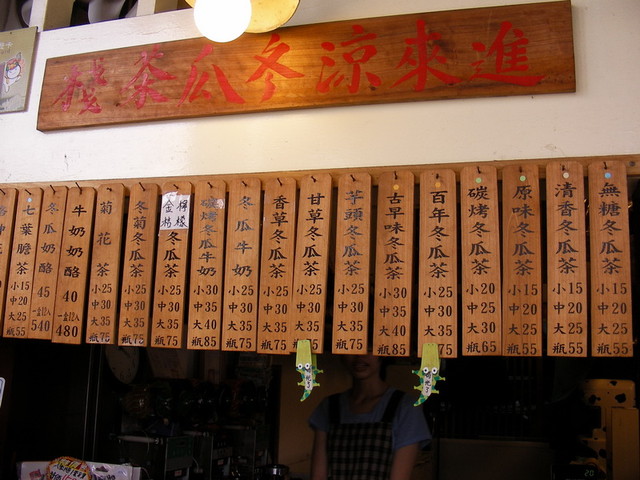 進來涼冬瓜茶棧
無糖冬瓜茶 小15 中20 大25 瓶55
清香冬瓜茶 小15 中20 大25 瓶55
原味冬瓜茶 小15 中20 大25 瓶55
碳烤冬瓜茶 小20 中25 大30 瓶65
百年冬瓜茶 小25 中30 大35
古早味冬瓜茶 小30 中35 大40 瓶85
芋頭冬瓜茶 小25 中30 大35 瓶75
甘草冬瓜茶 小25 中30 大35
香草冬瓜茶 小25 中30 大35 瓶75
冬瓜牛奶 小25 中30 大35 瓶75
碳烤冬瓜牛奶 小30 中35 大40 瓶85
檸檬 金桔 冬瓜茶 小25 中30 大35 瓶75
冬菊冬瓜茶 小25 中30 大35 瓶75
菊花茶 小25 中30 大35 瓶75
牛奶奶酪 40 一盒12入 480
冬瓜奶酪 45 一盒12入 540
七葉膽茶 小15 中20 大25 瓶55